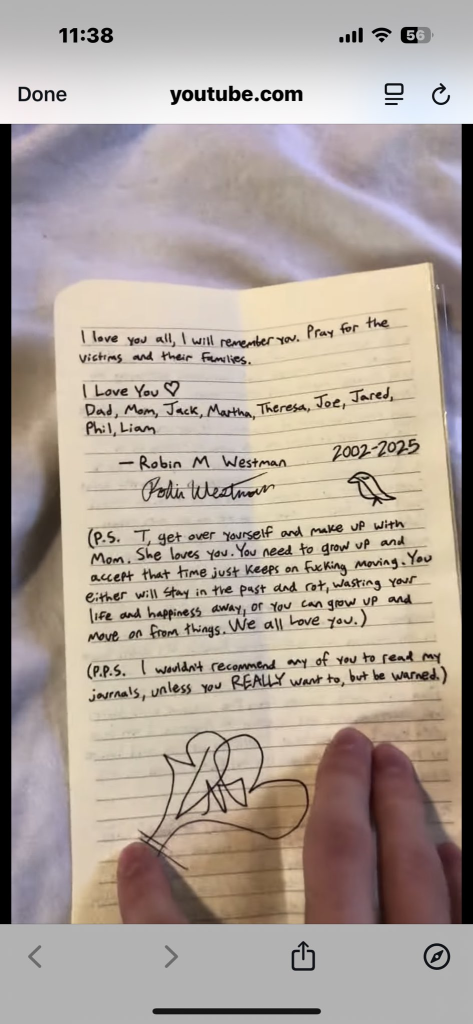 11:38
56
Done
youtube.com
I love you all, I will remember you. Pray for the
victims and their families.
I Love You ♡
Dad, Mom, Jack, Martha, Theresa, Joe, Jared,
Phil, Liam
— Robin M Westman 2002-2025
Robin Westman
(P.S. T, get over yourself and make up with
Mom. She loves you. You need to grow up and
accept that time just keeps on fucking moving. You
either will stay in the past and rot, wasting your
life and happiness away, or you can grow up and
move on from things. We all love you.)
(P.P.S. I wouldn't recommend any of you to read my
journals, unless you REALLY want to, but be warned.)